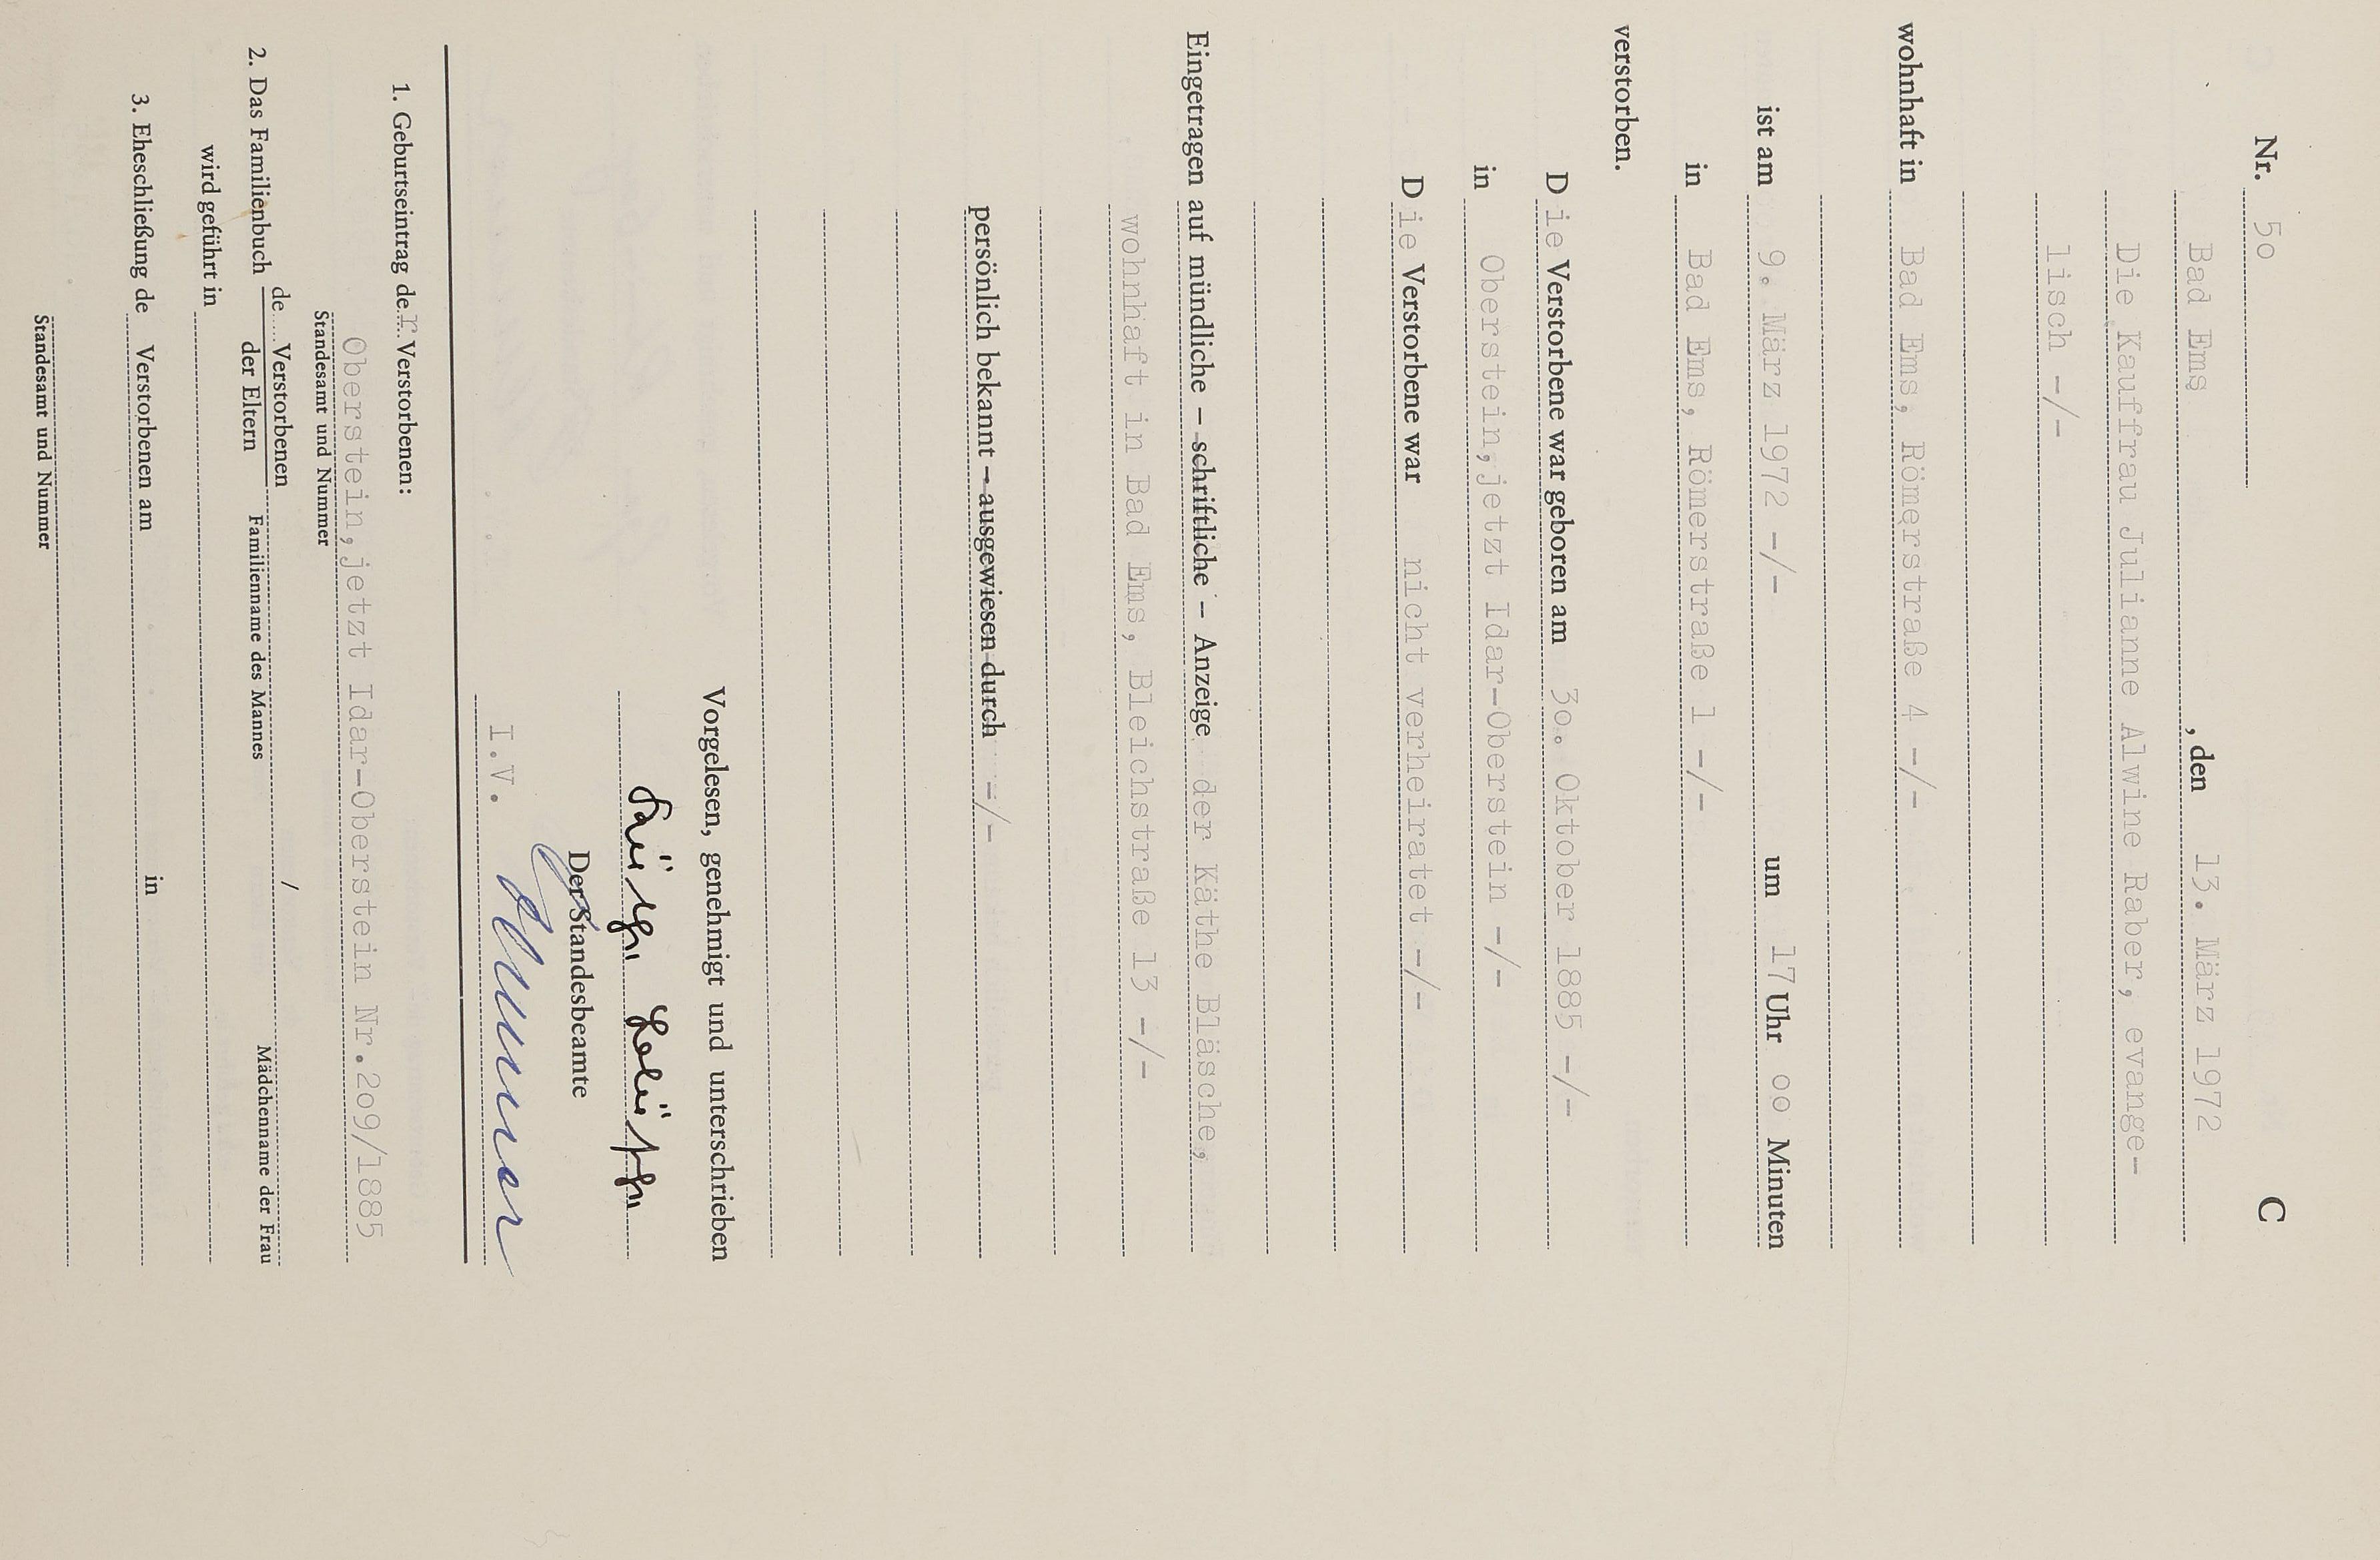 Nr. 50 C
Bad Ems, den 13. März 1972
Die Kauffrau Julianne Alwine Raber, evange-
lisch -/-
wohnhaft in Bad Ems, Römerstraße 4 -/-
ist am 9. März 1972 -/- um 17 Uhr oo Minuten
in Bad Ems, Römerstraße 1 -/-
verstorben.
Die Verstorbene war geboren am 3o. Oktober 1885 -/-
in Oberstein,jetzt Idar-Oberstein -/-
Die Verstorbene war nicht verheiratet -/-
Eingetragen auf mündliche - schriftliche - Anzeige der Käthe Bläsche,
wohnhaft in Bad Ems, Bleichstraße 13 -/-
persönlich bekannt - ausgewiesen durch -/-
Vorgelesen, genehmigt und unterschrieben
Der Standesbeamte
I.V.
1. Geburtseintrag der Verstorbenen:
Oberstein,jetzt Idar-Oberstein Nr.2o9/1885
Standesamt und Nummer
2. Das Familienbuch de Verstorbenen /
der Eltern Familienname des Mannes Mädchenname der Frau
wird geführt in
3. Eheschließung de Verstorbenen am in
Standesamt und Nummer